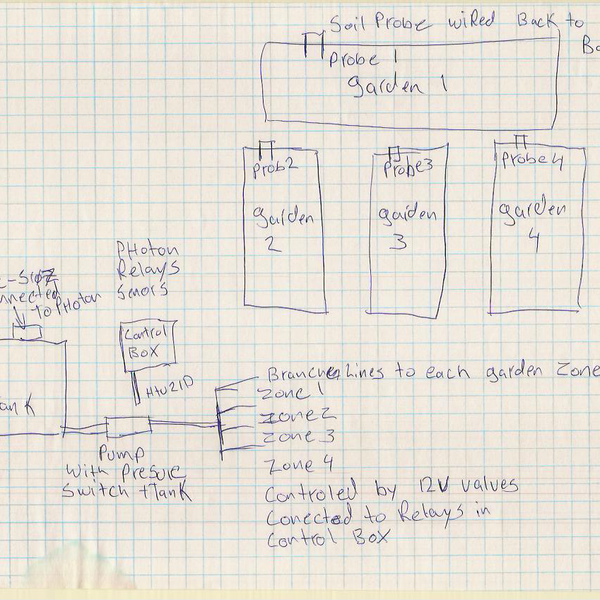 Soil Probe wired Back to
Probe 1
Garden 1
Prob2
garden
2
Probe3
garden
3
Probe4
garden
4
PHoton
Relays
Sensors
nnected
To PHoton
Control
BOX
HTU21D
ank
Pump
With Presure
Switch tTank
Branches Lines to each garden Zone
Zone 1
Zone 2
Zone 3
Zone 4
Controled by 12V valves
Conected to Relays in
Control Box